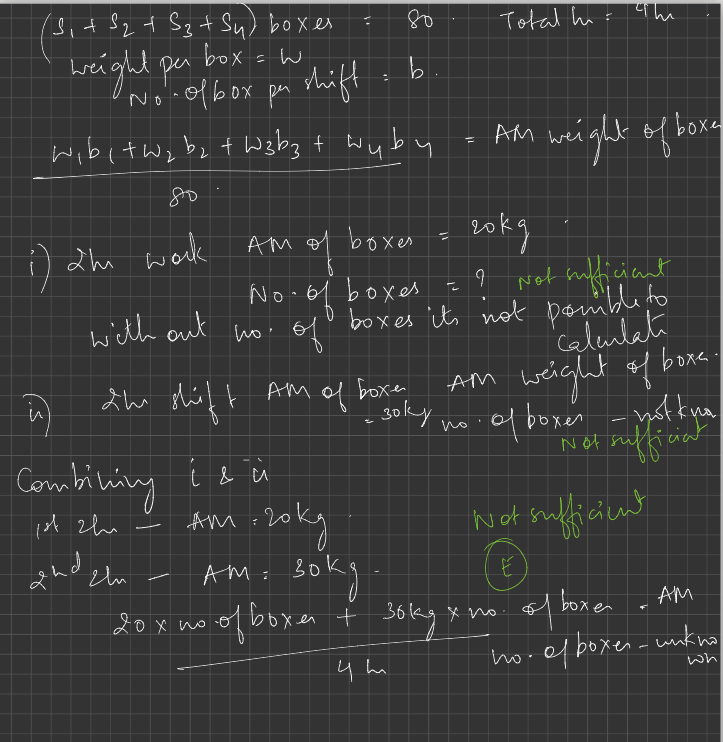 (S1 + S2 + S3 + S4) boxes = 80. Total hr = 4hr.
weight per box = w
No. of box per shift = b.
w1b1 + w2b2 + w3b3 + w4b4 = AM weight of boxes
80.
i) 2hr work AM of boxes = 20kg.
No. of boxes = ? Not sufficient
without no. of boxes its not possible to
calculate
ii) 2hr shift AM of boxes = 30kg AM weight of boxes.
no. of boxes - not kno
Not sufficient
Combining i & ii
1st 2hr - AM = 20kg. Not sufficient
2nd 2hr - AM = 30kg. E
20 x no of boxes + 30kg x no. of boxes = AM
4 hr no. of boxes - unkno
wn